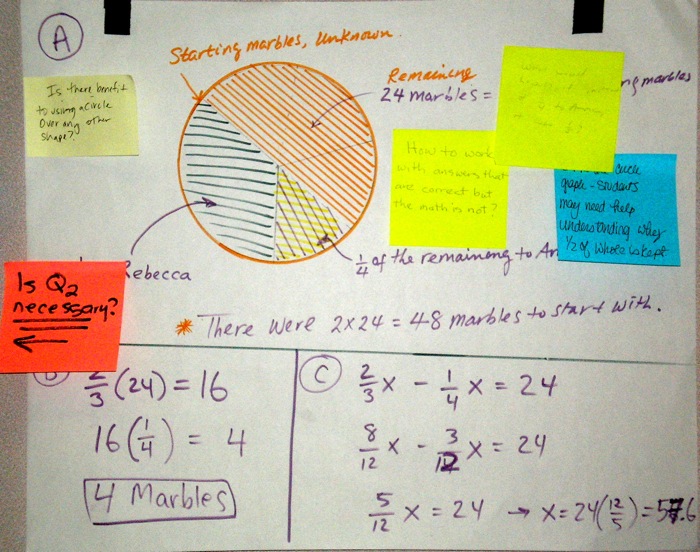 A
Starting marbles, Unknown.
Remaining
24 marbles =
ng marbles
Is there benefit
to using a circle
over any other
shape?
How to work
with answers that
are correct but
the math is not?
circle
graph - students
may need help
understanding why
1/2 of whole is kept
Rebecca
1/4 of the remaining to An
Is Q2
necessary?
←
* There were 2x24 = 48 marbles to start with.
B
2/3 (24) = 16
16 (1/4) = 4
4 Marbles
C
2/3 x - 1/4 x = 24
8/12 x - 3/12 x = 24
5/12 x = 24 → x = 24(12/5) = 57.6